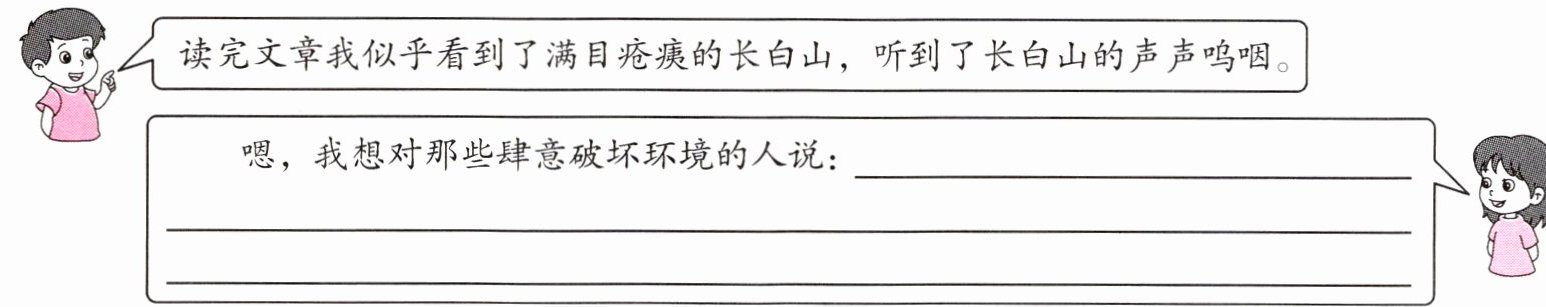 读完文章我似乎看到了满目疮痍的长白山，听到了长白山的声声呜咽。
嗯，我想对那些肆意破坏环境的人说：